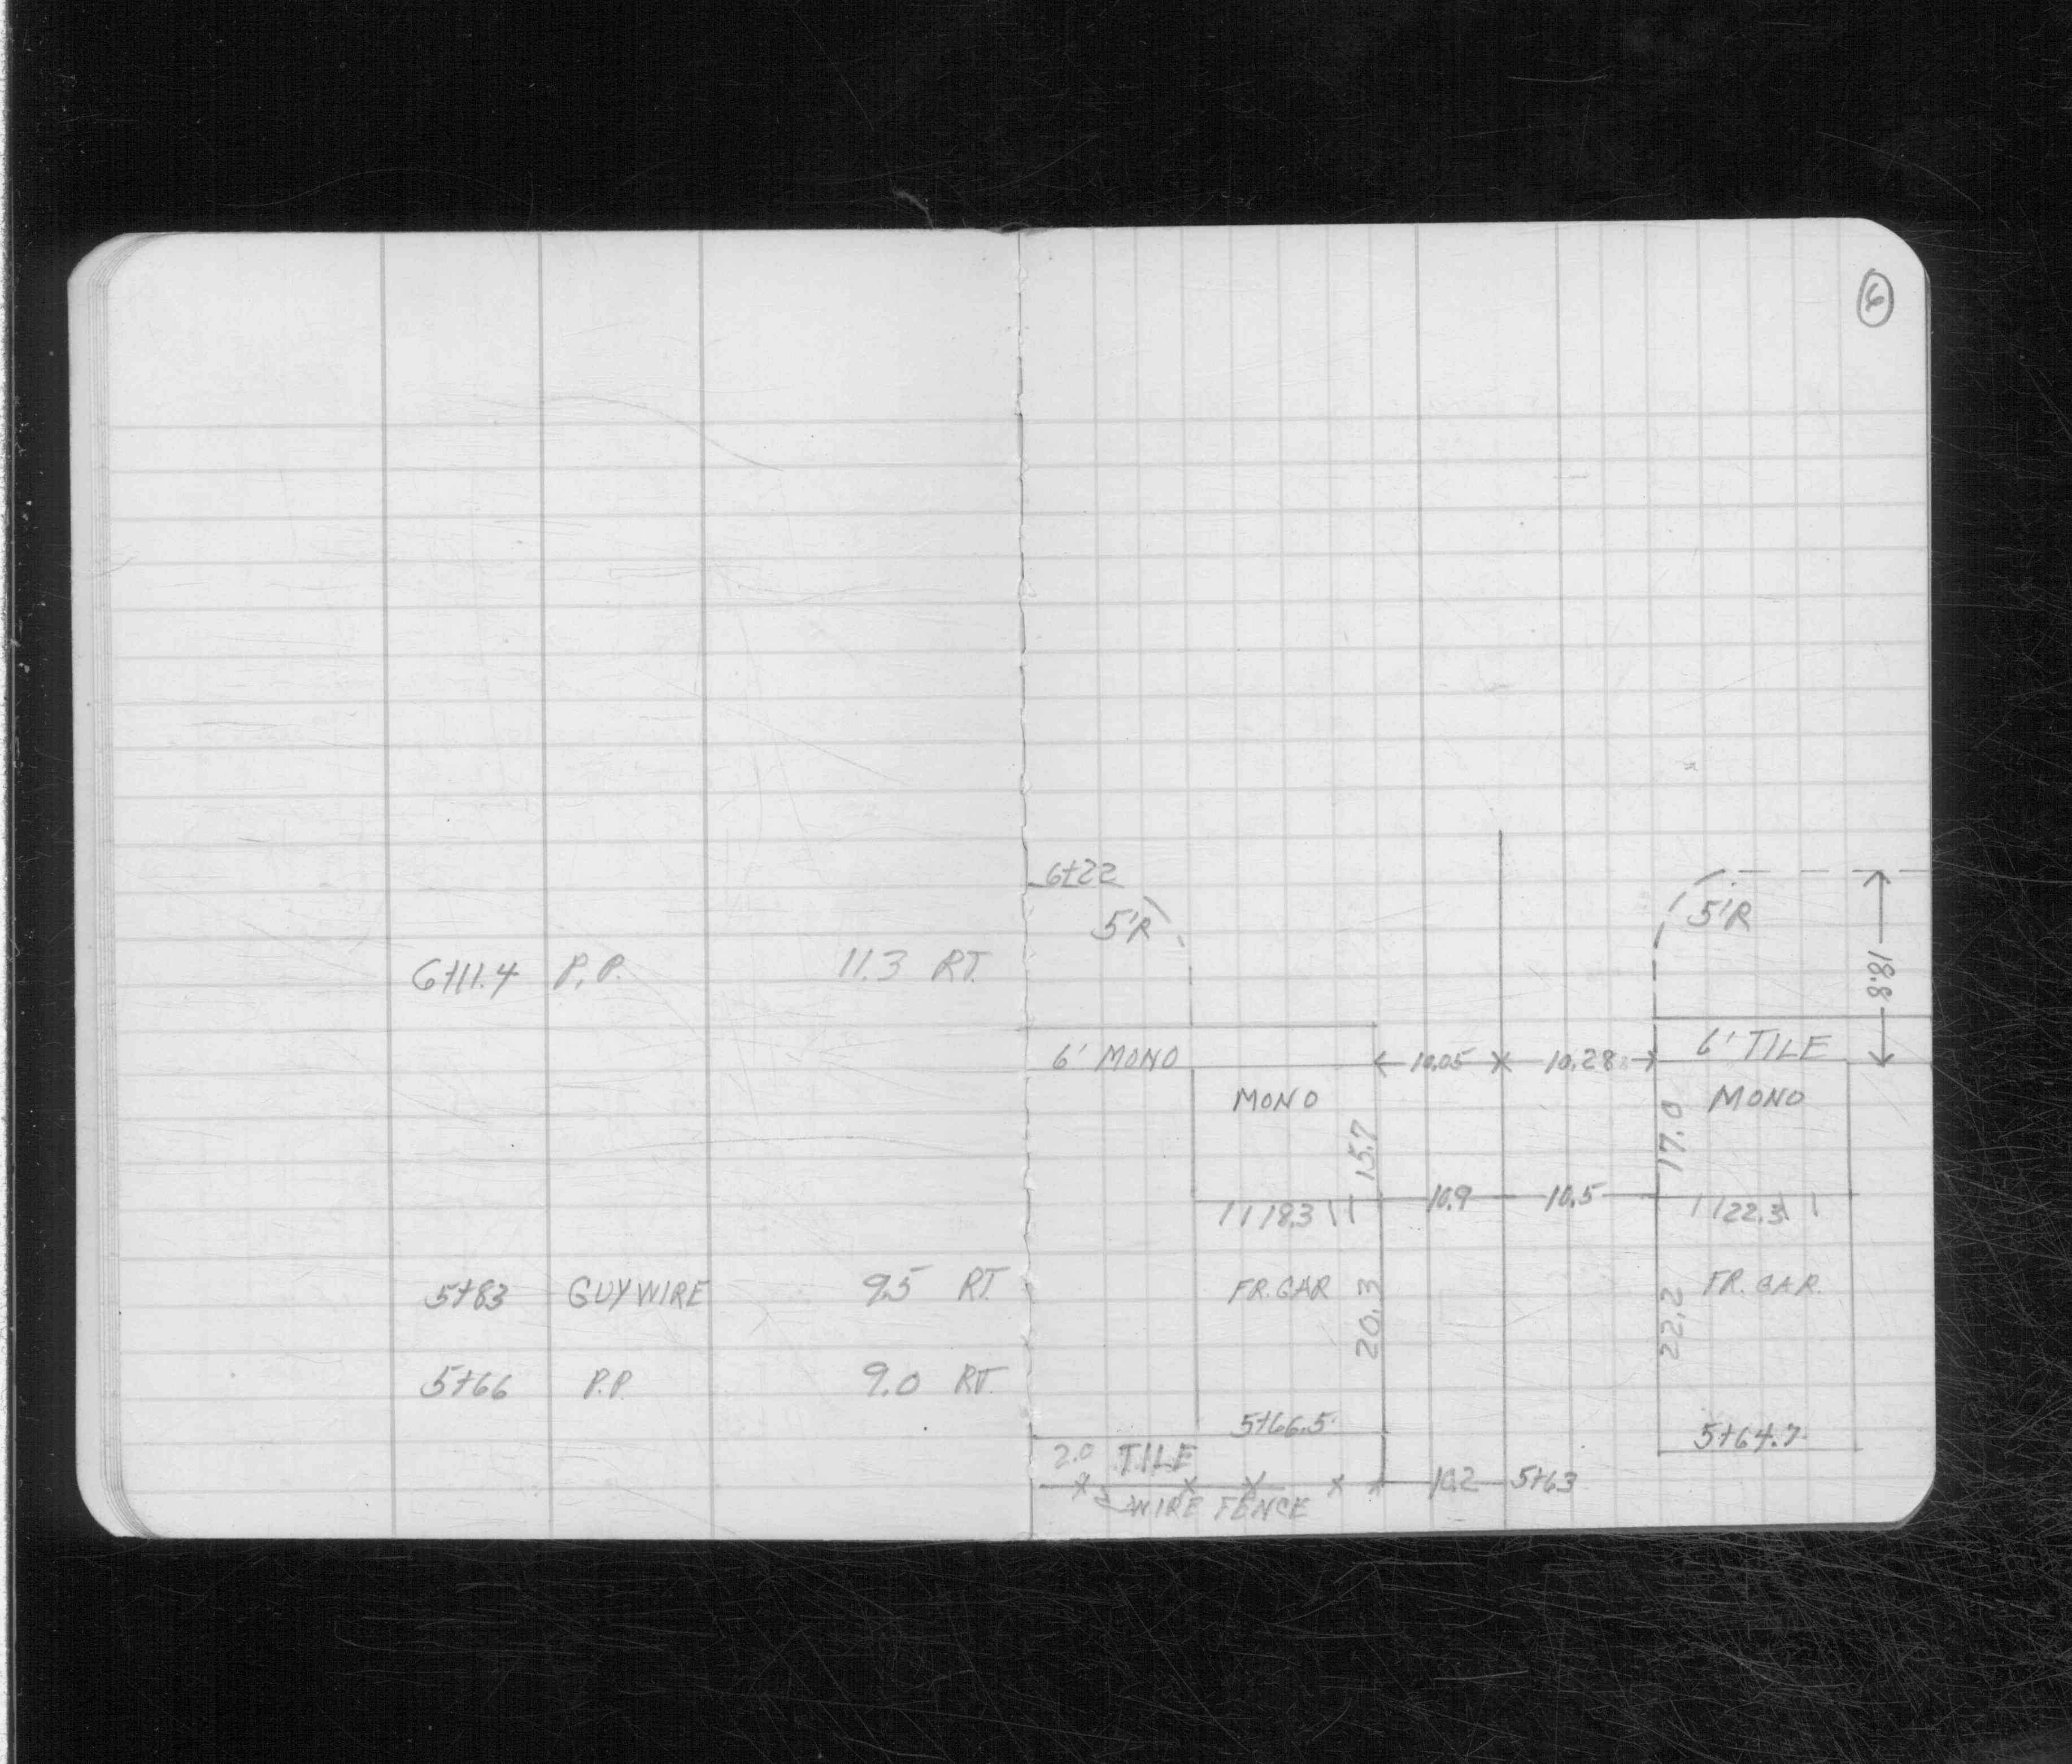 6+11.4 P.P. 11.3 RT.
5+83 GUYWIRE 9.5 RT.
5+66 P.P. 9.0 RT.
6
6+22
5'R
5'R
18.8
6' MONO
10.05
10.28
6' TILE
MONO
MONO
15.7
17.0
10.9
10.5
18.3
22.3
FR. GAR
FR. GAR.
20.3
22.2
5+66.5
5+64.7
2.0 TILE
10.2
5+63
WIRE FENCE